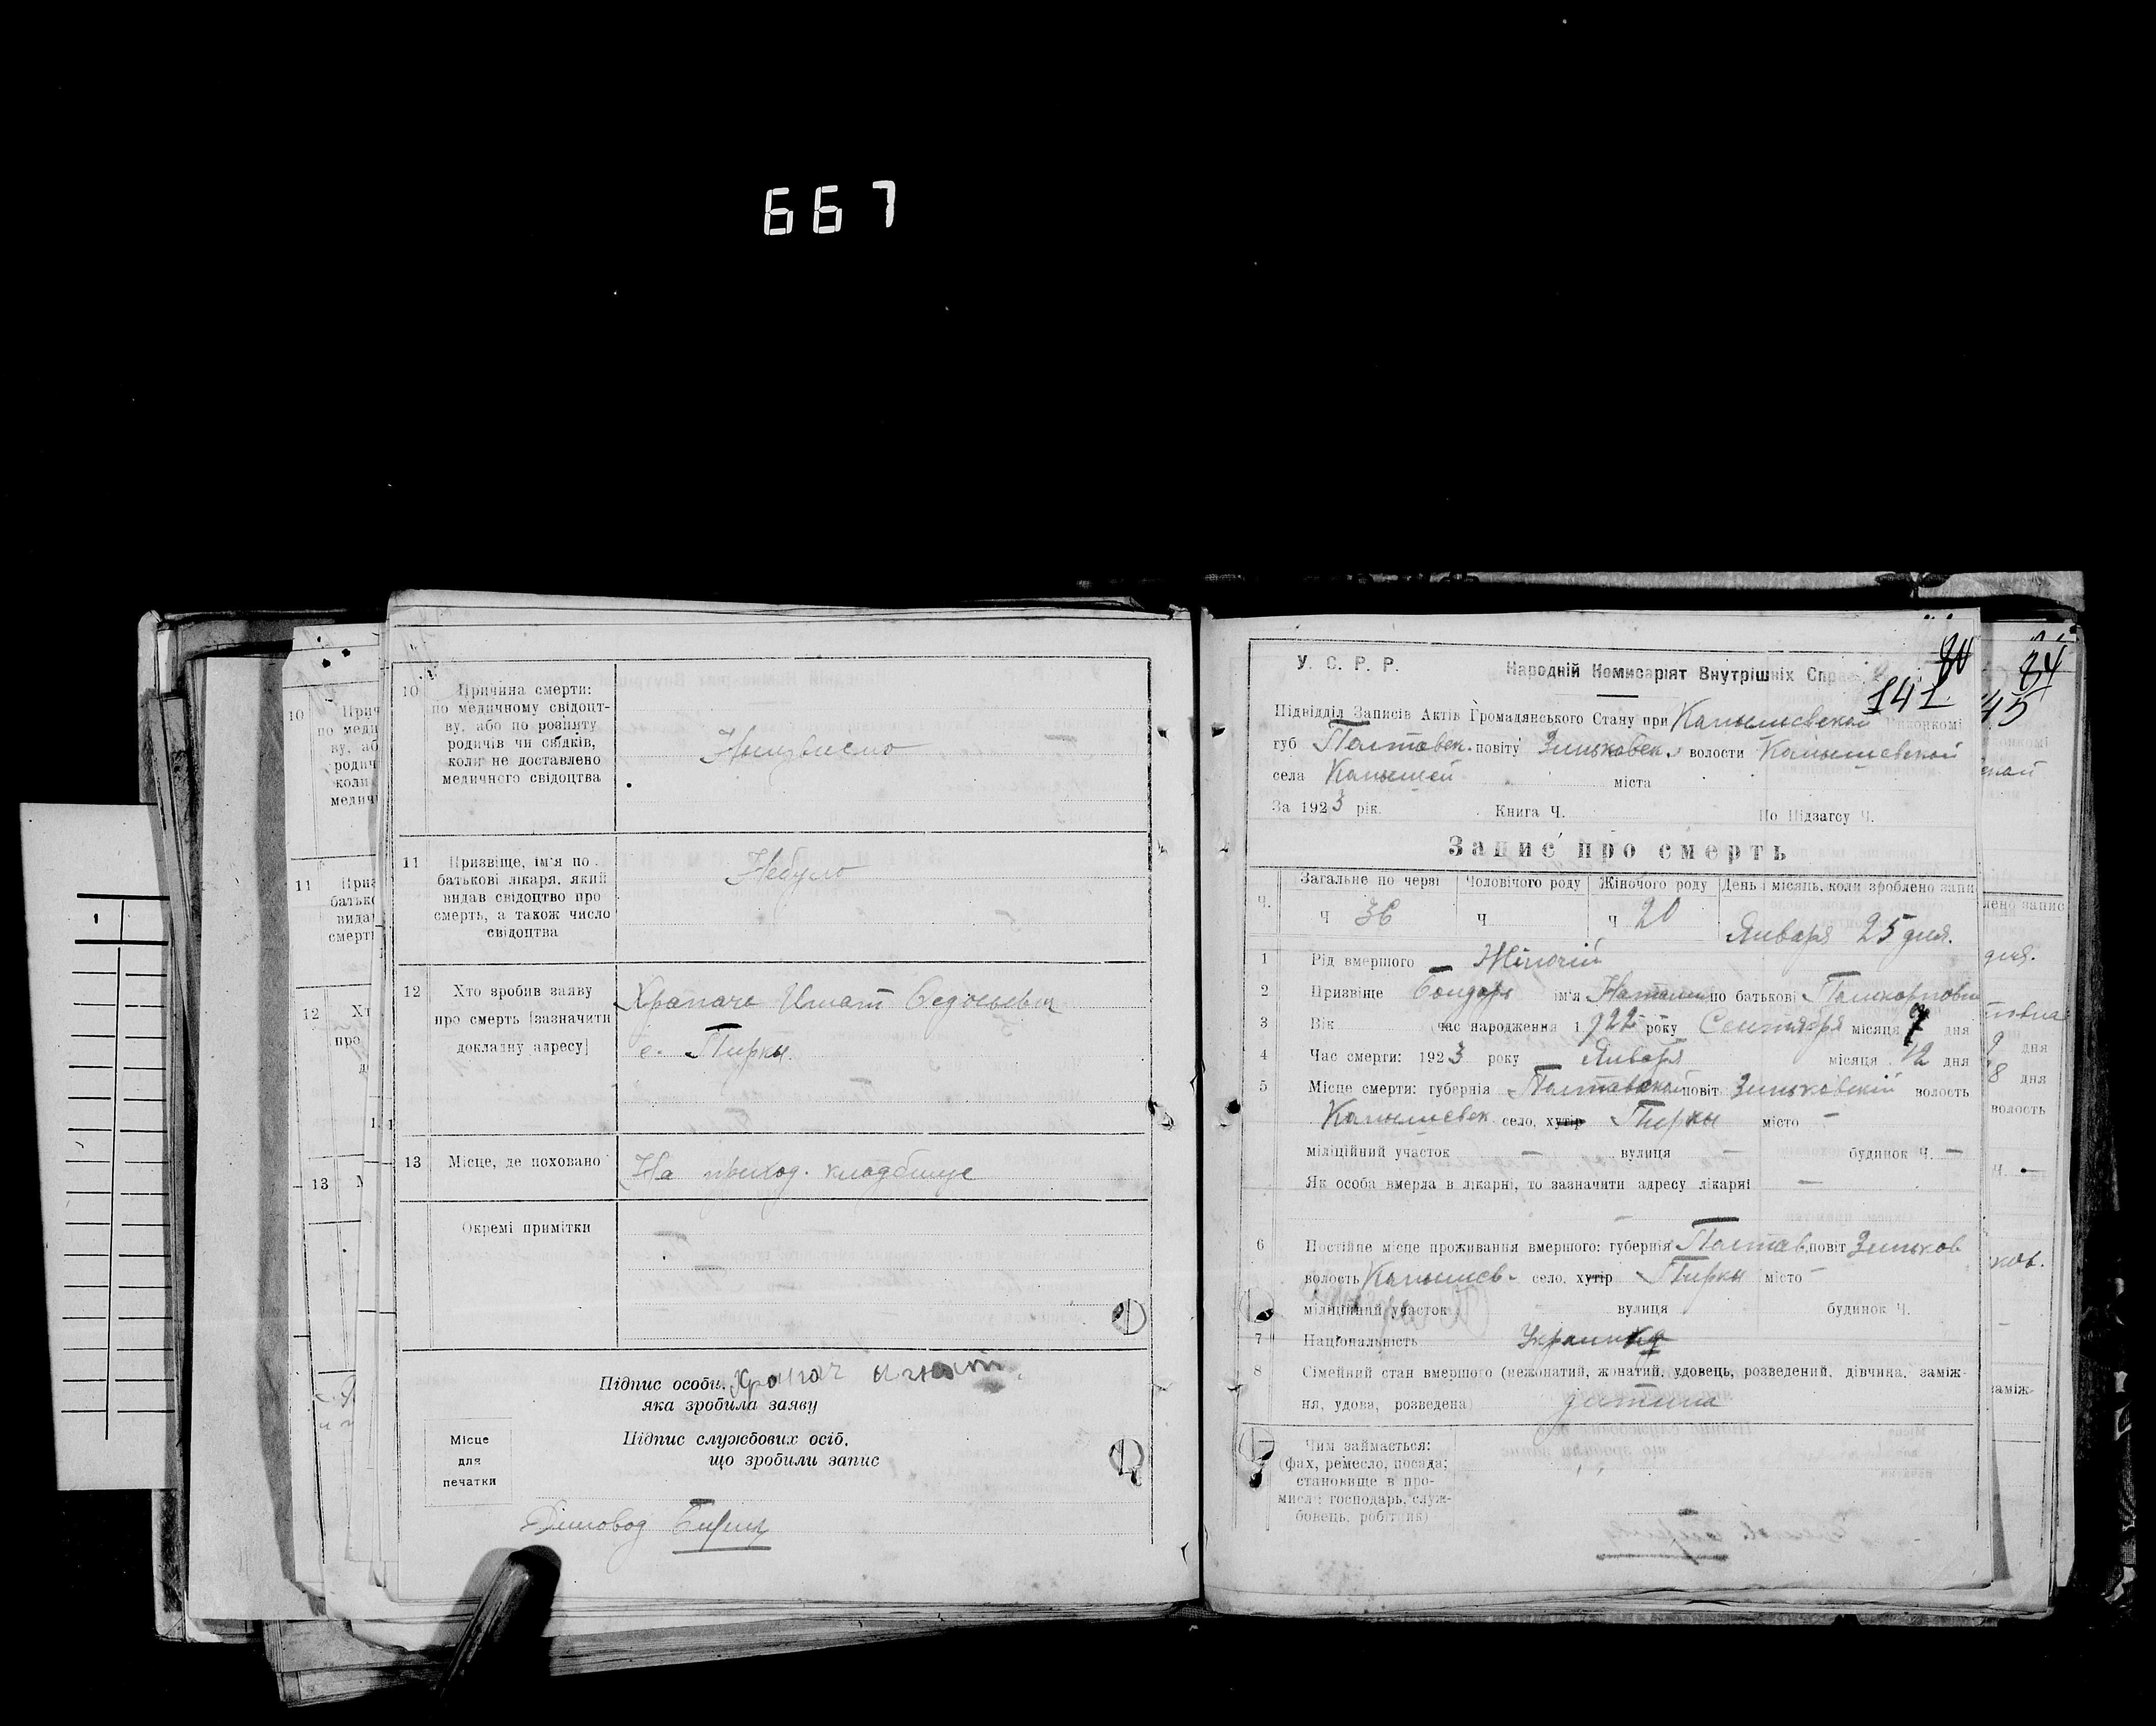 667
10 Причина смерти:
по медичному свідоцт-
ву, або по розпиту
родичів чи свідків,
коли не доставлено
медичного свідоцтва
11 Призвіще, ім'я по
батькові лікаря, який
видав свідоцтво про
смерть, а також число
свідоцтва
Небуло
12 Хто зробив заяву
про смерть (зазначити
докладну адресу)
Храпаче Игнат
с. Пирки
13 Місце, де поховано
На приход. кладбище
Окремі примітки
Підпис особи, Храпач Игнат.
яка зробила заяву
Підпис службових осіб,
що зробили запис
Місце
для
печатки
Діловод
У. С. Р. Р. Народній Комисаріят Внутрішніх Справ
84
141
Підвідділ Записів Актів Громадянського Стану при Камышевской Виконкомі
губ Полтавск. повіту Зиньковск. волости Камышевской
села Камышей міста
За 1923 рік. Книга Ч. По Підзагсу Ч.
Запис про смерть
Ч. Загальне по черзі Чоловічого роду Жіночого роду День і місяць, коли зроблено запи
Ч 36 Ч Ч 20 Января 25 дня.
1 Рід вмершого Жіночій
2 Призвіще Бондарь ім'я по батькові
3 Вік (час народження 1922 року Сентября місяця 7 дня
4 Час смерти: 1923 року Января місяця 12 дня
5 Місце смерти: губернія Полтавской повіт Зиньковский волость
Камышевск село, хутір Пирки місто –
міліційний участок вулиця будинок Ч. –
Як особа вмерла в лікарні, то зазначити адресу лікарні –
6 Постійне місце проживання вмершого: губернія Полтав. повіт Зиньков
волость Камышев- село, хутір Пирки місто
міліційний участок вулиця будинок Ч.
7 Національність
8 Сімейний стан вмершого (нежонатий, жонатий, удовець, розведений, дівчина, заміж-
ня, удова, розведена) дитина
Чим займається:
(фах, ремесло, посада;
становище в про-
мислі: господарь, служ-
бовець, робітник)
84
45